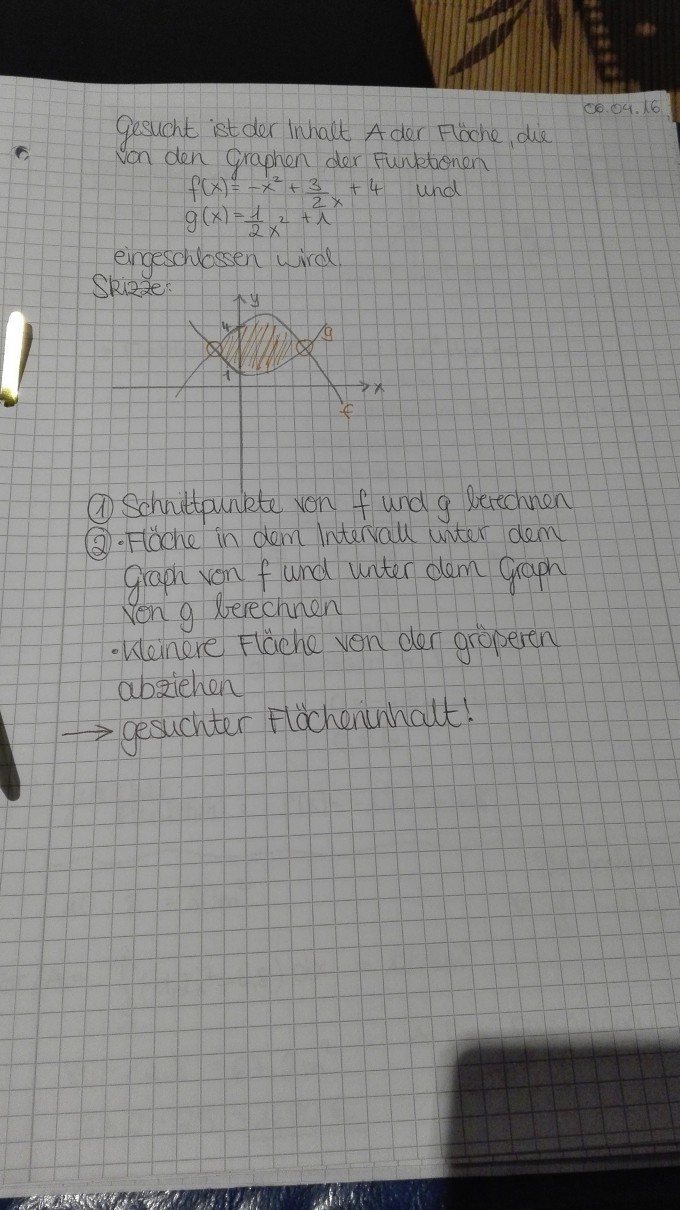 06.04.16
Gesucht ist der Inhalt A der Fläche, die
von den Graphen der Funktionen
f(x)= -x² + 3/2 x + 4 und
g(x)= 1/2 x² + 1
eingeschlossen wird.
Skizze:
y
4
g
1
x
f
① Schnittpunkte von f und g berechnen
② • Fläche in dem Intervall unter dem
Graph von f und unter dem Graph
von g berechnen
• kleinere Fläche von der größeren
abziehen
→ gesuchter Flächeninhalt!